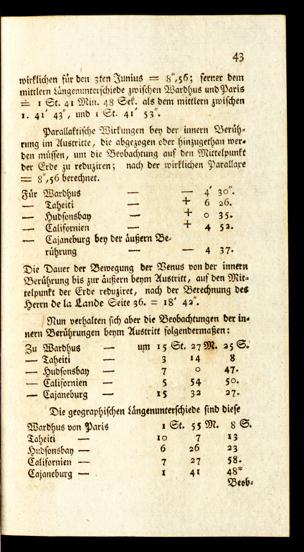 43
wirklichen für den 3ten Junius = 8",56; ferner dem
mittlern Längenunterschiede zwischen Wardhus und Paris
= 1 St. 41 Min. 48 Sek. als dem mittlern zwischen
1. 41' 43", und 1 St. 41' 53".
Parallaktische Wirkungen bey der innern Berüh-
rung im Austritte, die abgezogen oder hinzugethan wer-
den müssen, um die Beobachtung auf den Mittelpunkt
der Erde zu reduziren; nach der wirklichen Parallaxe
= 8",56 berechnet.
Für Wardhus — — 4' 30".
— Taheiti — + 6 26.
— Hudsonsbay — + 0 35.
— Californien — + 4 52.
— Cajaneburg bey der äußern Be-
rührung — — 4 37.
Die Dauer der Bewegung der Venus von der innern
Berührung bis zur äußern beym Austritt, auf den Mit-
telpunkt der Erde reduziret, nach der Berechnung des
Herrn de la Lande Seite 36. = 18' 42".
Nun verhalten sich aber die Beobachtungen der in-
nern Berührungen beym Austritt folgendermaßen:
Zu Wardhus — um 15 St. 27 M. 25 S.
— Taheiti — 3 14 8
— Hudsonsbay — 7 0 47.
— Californien — 5 54 50.
— Cajaneburg — 15 32 27.
Die geographischen Längenunterschiede sind diese
Wardhus von Paris 1 St. 55 M. 8 S.
Taheiti — 10 7 13
Hudsonsbay — 6 26 23
Californien — 7 27 58.
Cajaneburg — 1 41 48"
Beob-